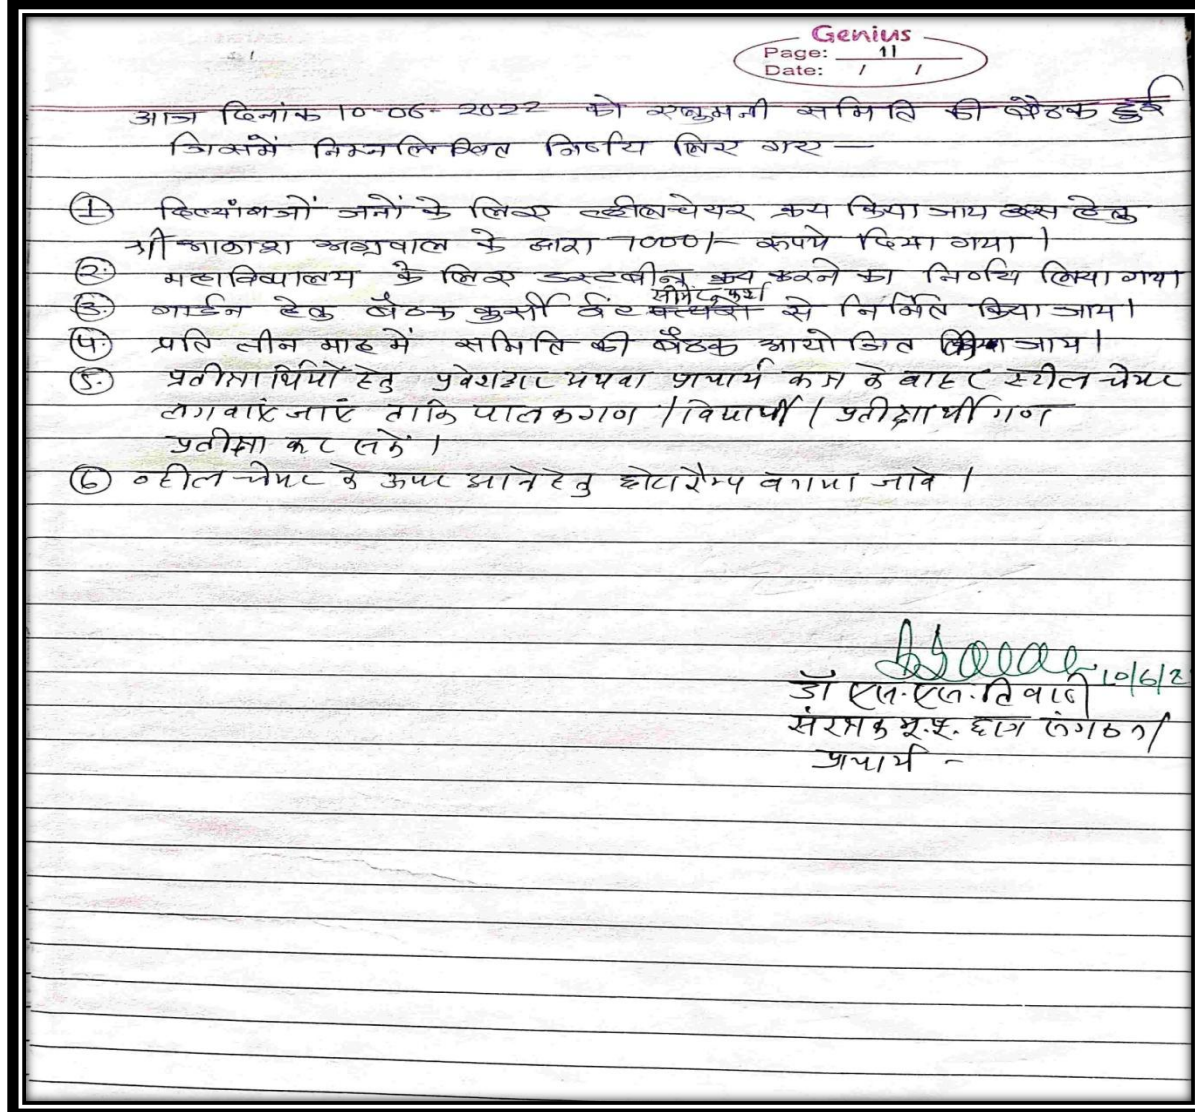 Genius
Page: 11
Date: / /
आज दिनांक 10-06-2022 को एलुमनी समिति की बैठक हुई
जिसमें निम्नलिखित निर्णय लिए गए —
① दिव्यांगजों जनों के लिए व्हीलचेयर क्रय किया जाय इस हेतु
श्री आकाश अग्रवाल के द्वारा 7000/- रूपये दिया गया।
②. महाविद्यालय के लिए डस्टबीन क्रय करने का निर्णय लिया गया
③. गार्डन हेतु बैठक कुर्सी ईंट सीमेंट से निर्मित किया जाय।
④. प्रति तीन माह में समिति की बैठक आयोजित किया जाय।
⑤. प्रतीक्षार्थियों हेतु प्रवेशद्वार अथवा प्राचार्य कक्ष के बाहर स्टील चेयर
लगवाएं जाएं ताकि पालकगण / विद्यार्थी / प्रतीक्षार्थी गण
प्रतीक्षा कर सकें।
⑥ व्हील चेयर के ऊपर आने हेतु छोटा रैम्प बनाया जावे।
10/6/2
डॉ एल.एल. तिवारी
संरक्षक भू.पू. छात्र संगठन/
प्राचार्य -